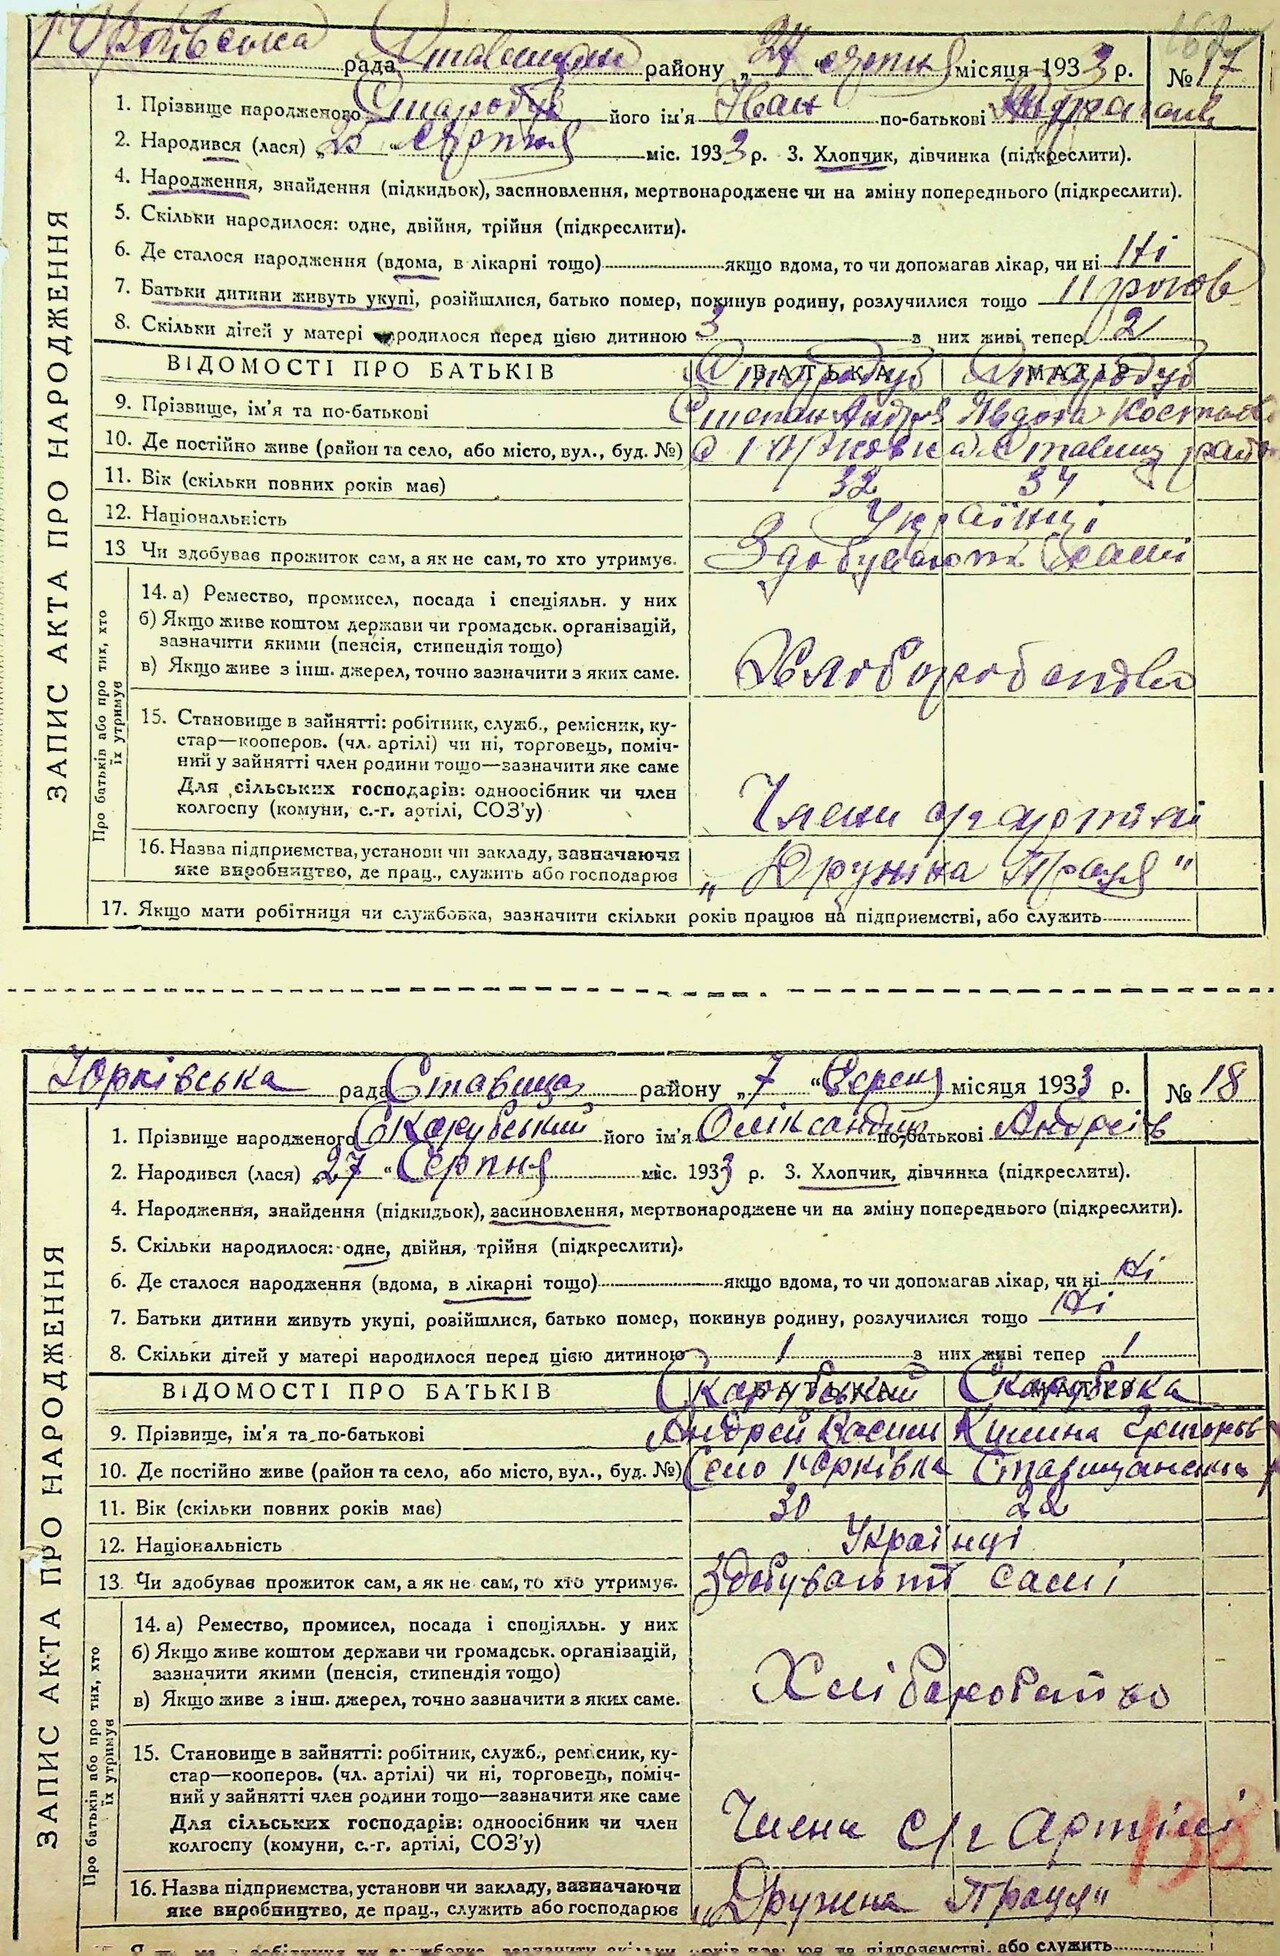 рада Ставищан району „27" серпня місяця 1933 р. № 17
1. Прізвище народженого Стародуб його ім'я Іван по-батькові
2. Народився (лася) „25 серпня міс. 1933 р. 3. Хлопчик, дівчинка (підкреслити).
4. Народження, знайдення (підкидьок), засиновлення, мертвонароджене чи на зміну попереднього (підкреслити).
5. Скільки народилося: одне, двійня, трійня (підкреслити).
6. Де сталося народження (вдома, в лікарні тощо) якщо вдома, то чи допомагав лікар, чи ні Ні
7. Батьки дитини живуть укупі, розійшлися, батько помер, покинув родину, розлучилися тощо 11 років
8. Скільки дітей у матері народилося перед цією дитиною 3 з них живі тепер 2
ВІДОМОСТІ ПРО БАТЬКІВ БАТЬКА МАТІР
Стародуб Стародуб
9. Прізвище, ім'я та по-батькові Степан Андрів Явдоха
10. Де постійно живе (район та село, або місто, вул., буд. №) с Юрковка Ставищ район
11. Вік (скільки повних років має) 32 34
12. Національність Українці
13 Чи здобував прожиток сам, а як не сам, то хто утримує. Здобувають сами
Про батьків або про тих, хто їх утримує
14. а) Ремество, промисел, посада і спеціяльн. у них
б) Якщо живе коштом держави чи громадськ. організацій,
зазначити якими (пенсія, стипендія тощо)
в) Якщо живе з інш. джерел, точно зазначити з яких саме.
15. Становище в зайнятті: робітник, служб., ремісник, ку-
стар—кооперов. (чл. артілі) чи ні, торговець, поміч-
ний у зайнятті член родини тощо—зазначити яке саме
Для сільських господарів: одноосібник чи член
колгоспу (комуни, с.-г. артілі, СОЗ'у)
Члени с/г артілі
16. Назва підприємства, установи чи закладу, зазначаючи
яке виробництво, де прац., служить або господарює
„Дружна Праця"
17. Якщо мати робітниця чи службовка, зазначити скільки років працює на підприємстві, або служить
ЗАПИС АКТА ПРО НАРОДЖЕННЯ
Юрківська рада Ставища району „7 " Вересня місяця 1933 р. № 18
1. Прізвище народженого Скарубський його ім'я Оліксандир по-батькові Андреїв
2. Народився (лася) „27 " Серпня міс. 1933 р. 3. Хлопчик, дівчинка (підкреслити).
4. Народження, знайдення (підкидьок), засиновлення, мертвонароджене чи на зміну попереднього (підкреслити).
5. Скільки народилося: одне, двійня, трійня (підкреслити).
6. Де сталося народження (вдома, в лікарні тощо) якщо вдома, то чи допомагав лікар, чи ні Ні
7. Батьки дитини живуть укупі, розійшлися, батько помер, покинув родину, розлучилися тощо Ні
8. Скільки дітей у матері народилося перед цією дитиною 1 з них живі тепер 1
ВІДОМОСТІ ПРО БАТЬКІВ БАТЬКА МАТІР
Скарубський Скарубська
9. Прізвище, ім'я та по-батькові Андрей Васил Килина Григорьов
10. Де постійно живе (район та село, або місто, вул., буд. №) Село Юрківка Ставищанський
11. Вік (скільки повних років має) 30 22
12. Національність Українці
13. Чи здобував прожиток сам, а як не сам, то хто утримує. Здобувають самі
Про батьків або про тих, хто їх утримує
14. а) Ремество, промисел, посада і споціяльн. у них
б) Якщо живе коштом держави чи громадськ. організацій,
зазначити якими (пенсія, стипендія тощо)
в) Якщо живе з інш. джерел, точно зазначити з яких саме.
15. Становище в зайнятті: робітник, служб., ремісник, ку-
стар—кооперов. (чл. артілі) чи ні, торговець, поміч-
ний у зайнятті член родини тощо—зазначити яке саме
Для сільських господарів: одноосібник чи член
колгоспу (комуни, с.-г. артілі, СОЗ'у)
Члени с/г Артілі
138
16. Назва підприємства, установи чи закладу, зазначаючи
яке виробництво, де прац., служить або господарює
„Дружена Праця"
ЗАПИС АКТА ПРО НАРОДЖЕННЯ